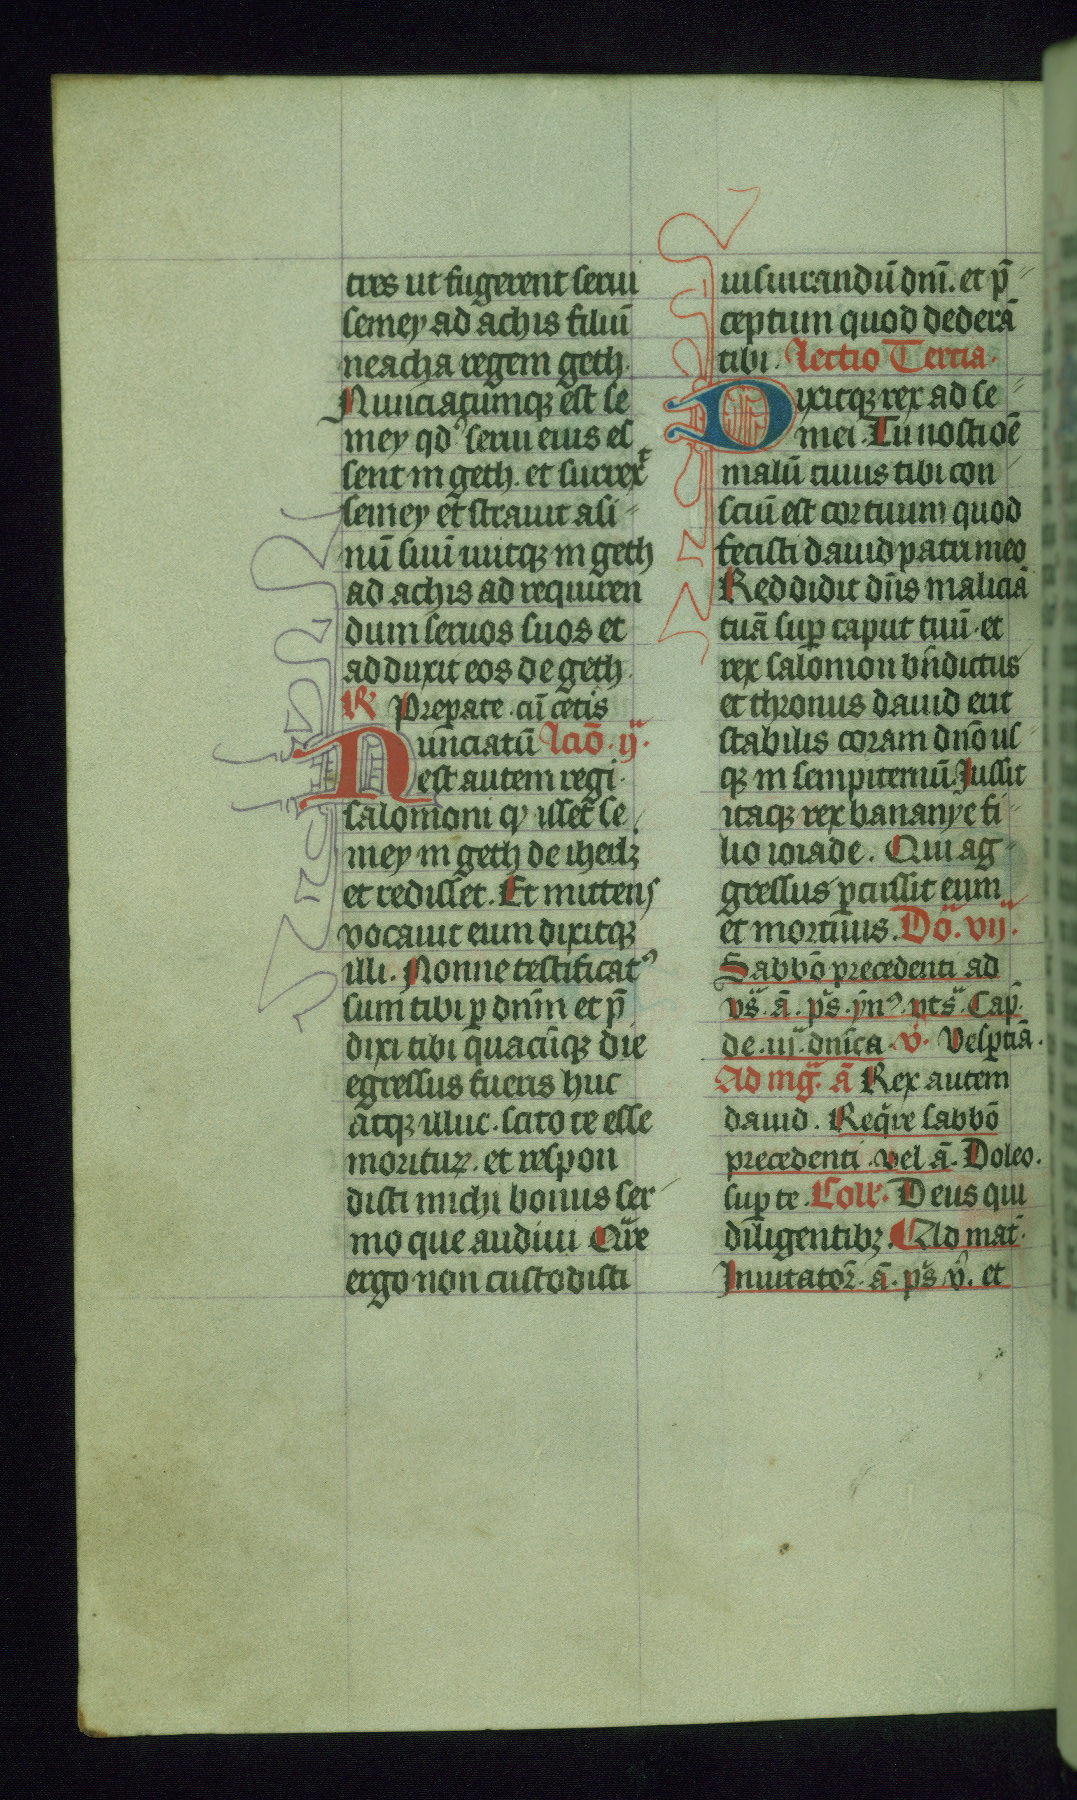 tres ut fugerent serui
semey ad achis filiū
neacha regem geth.
Nunciatumqꝫ est se
mey qd' serui eius es
sent in geth. et surrex͛
semey et̄ strauit asi
nū suū iuitqꝫ in geth
ad achis ad requiren
dum seruos suos et
adduxit eos de geth.
R̷ Preparate. cū cetis
Nunciatū Lcio. ij.
est autem regi
salomoni ꝙ isset se
mey in geth de iherlꝫ
et redisset. Et mittens
vocauit eum dixitqꝫ
illi. Nonne testificatꝰ
sum tibi ꝑ dnm̄ et p̄
dixi tibi quacūqꝫ die
egressus fueris huc
atqꝫ illuc. scito te esse
moriturꝫ. et respon
disti michi bonus ser
mo que audiui Qͥre
ergo non custodisti
iusiurandū dnī. et p̄
ceptum quod dederā
tibi. Lectio Tercia.
Dixitqꝫ rex ad se
mei. Tu nosti oē
malū cuius tibi con
sciū est cor tuum quod
fecisti dauid patri meo
Reddidit dn̄s maliciā
tuā suꝑ caput tuū. et
rex salomon bn̄dictus
et thronus dauid erit
stabilis coram dnō us
qꝫ in sempiternū. Jussit
itaqꝫ rex bananye fi
lio ioiade. Qui ag
gressus ꝑcussit eum
et mortuus. Do. vij.
Sabbō precedenti ad
vs̄. ā. ps̄. ynꝰ. vts̄. Cap̄.
de. iij. dnīca. v̄. Vesꝑtiā.
Ad mḡ. ā Rex autem
dauid. Reqͥre sabbō
precedenti. vel ā. Doleo.
suꝑ te. Coll'. Deus qui
diligentibꝫ. Ad mat̄.
Inuitator̄. ā. ps̄. v̄. et